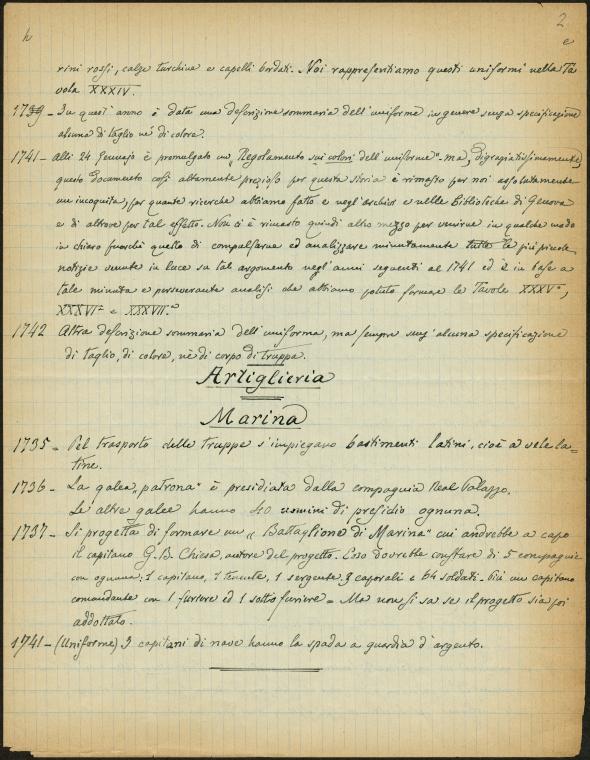 h
2
e
rini rossi, calze turchine e capelli bordati. Noi rappresentiamo questi uniformi nella Ta
vola XXXIV.
1739 - In quest'anno è data una descrizione sommaria dell'uniforme in genere senza specificazione
alcuna di taglio nè di colore.
1741 - Alli 24 Gennajo è promulgato un "Regolamento sui colori dell'uniforme" - ma, disgraziatissimamente,
questo documento così altamente prezioso per questa storia è rimasto per noi assolutamente
un'incognita, per quante ricerche abbiamo fatto e negl'archivi e nelle biblioteche di Genova
e di altrove per tal effetto. Non ci è rimasto quindi altro mezzo per venirne in qualche modo
in chiaro fuorchè quello di compulsarne ed analizzare minutamente tutte le più piccole
notizie venute in luce su tal argomento negl'anni seguenti al 1741 ed è in base a
tale minuta e perseverante analisi che abbiamo potuto formare le Tavole XXXVª,
XXXVIª e XXXVIIª
1742 Altra descrizione sommaria dell'uniforma, ma sempre senz'alcuna specificazione
di taglio, di colore, nè di corpo di truppa.
Artiglieria
Marina
1735 - Pel trasporto delle truppe s'impiegano bastimenti latini, cioè a vele la=
tine.
1736 - La galea "patrona" è presidiata dalla compagnia Real Palazzo.
Le altre galee hanno 40 uomini di presidio ognuna.
1737 - Si progetta di formare un "Battaglione di Marina" cui andrebbe a capo
il capitano G. B. Chiesa, autore del progetto. Esso dovrebbe constare di 5 compagnie
con ognuna: 1 capitano, 1 tenente, 1 sergente, 3 caporali e 64 soldati. Più un capitano
comandante con 1 furiere ed 1 sotto furiere = Ma non si sa se il progetto sia poi
addottato.
1741 - (Uniforme) I capitani di nave hanno la spada a guardia d'argento.